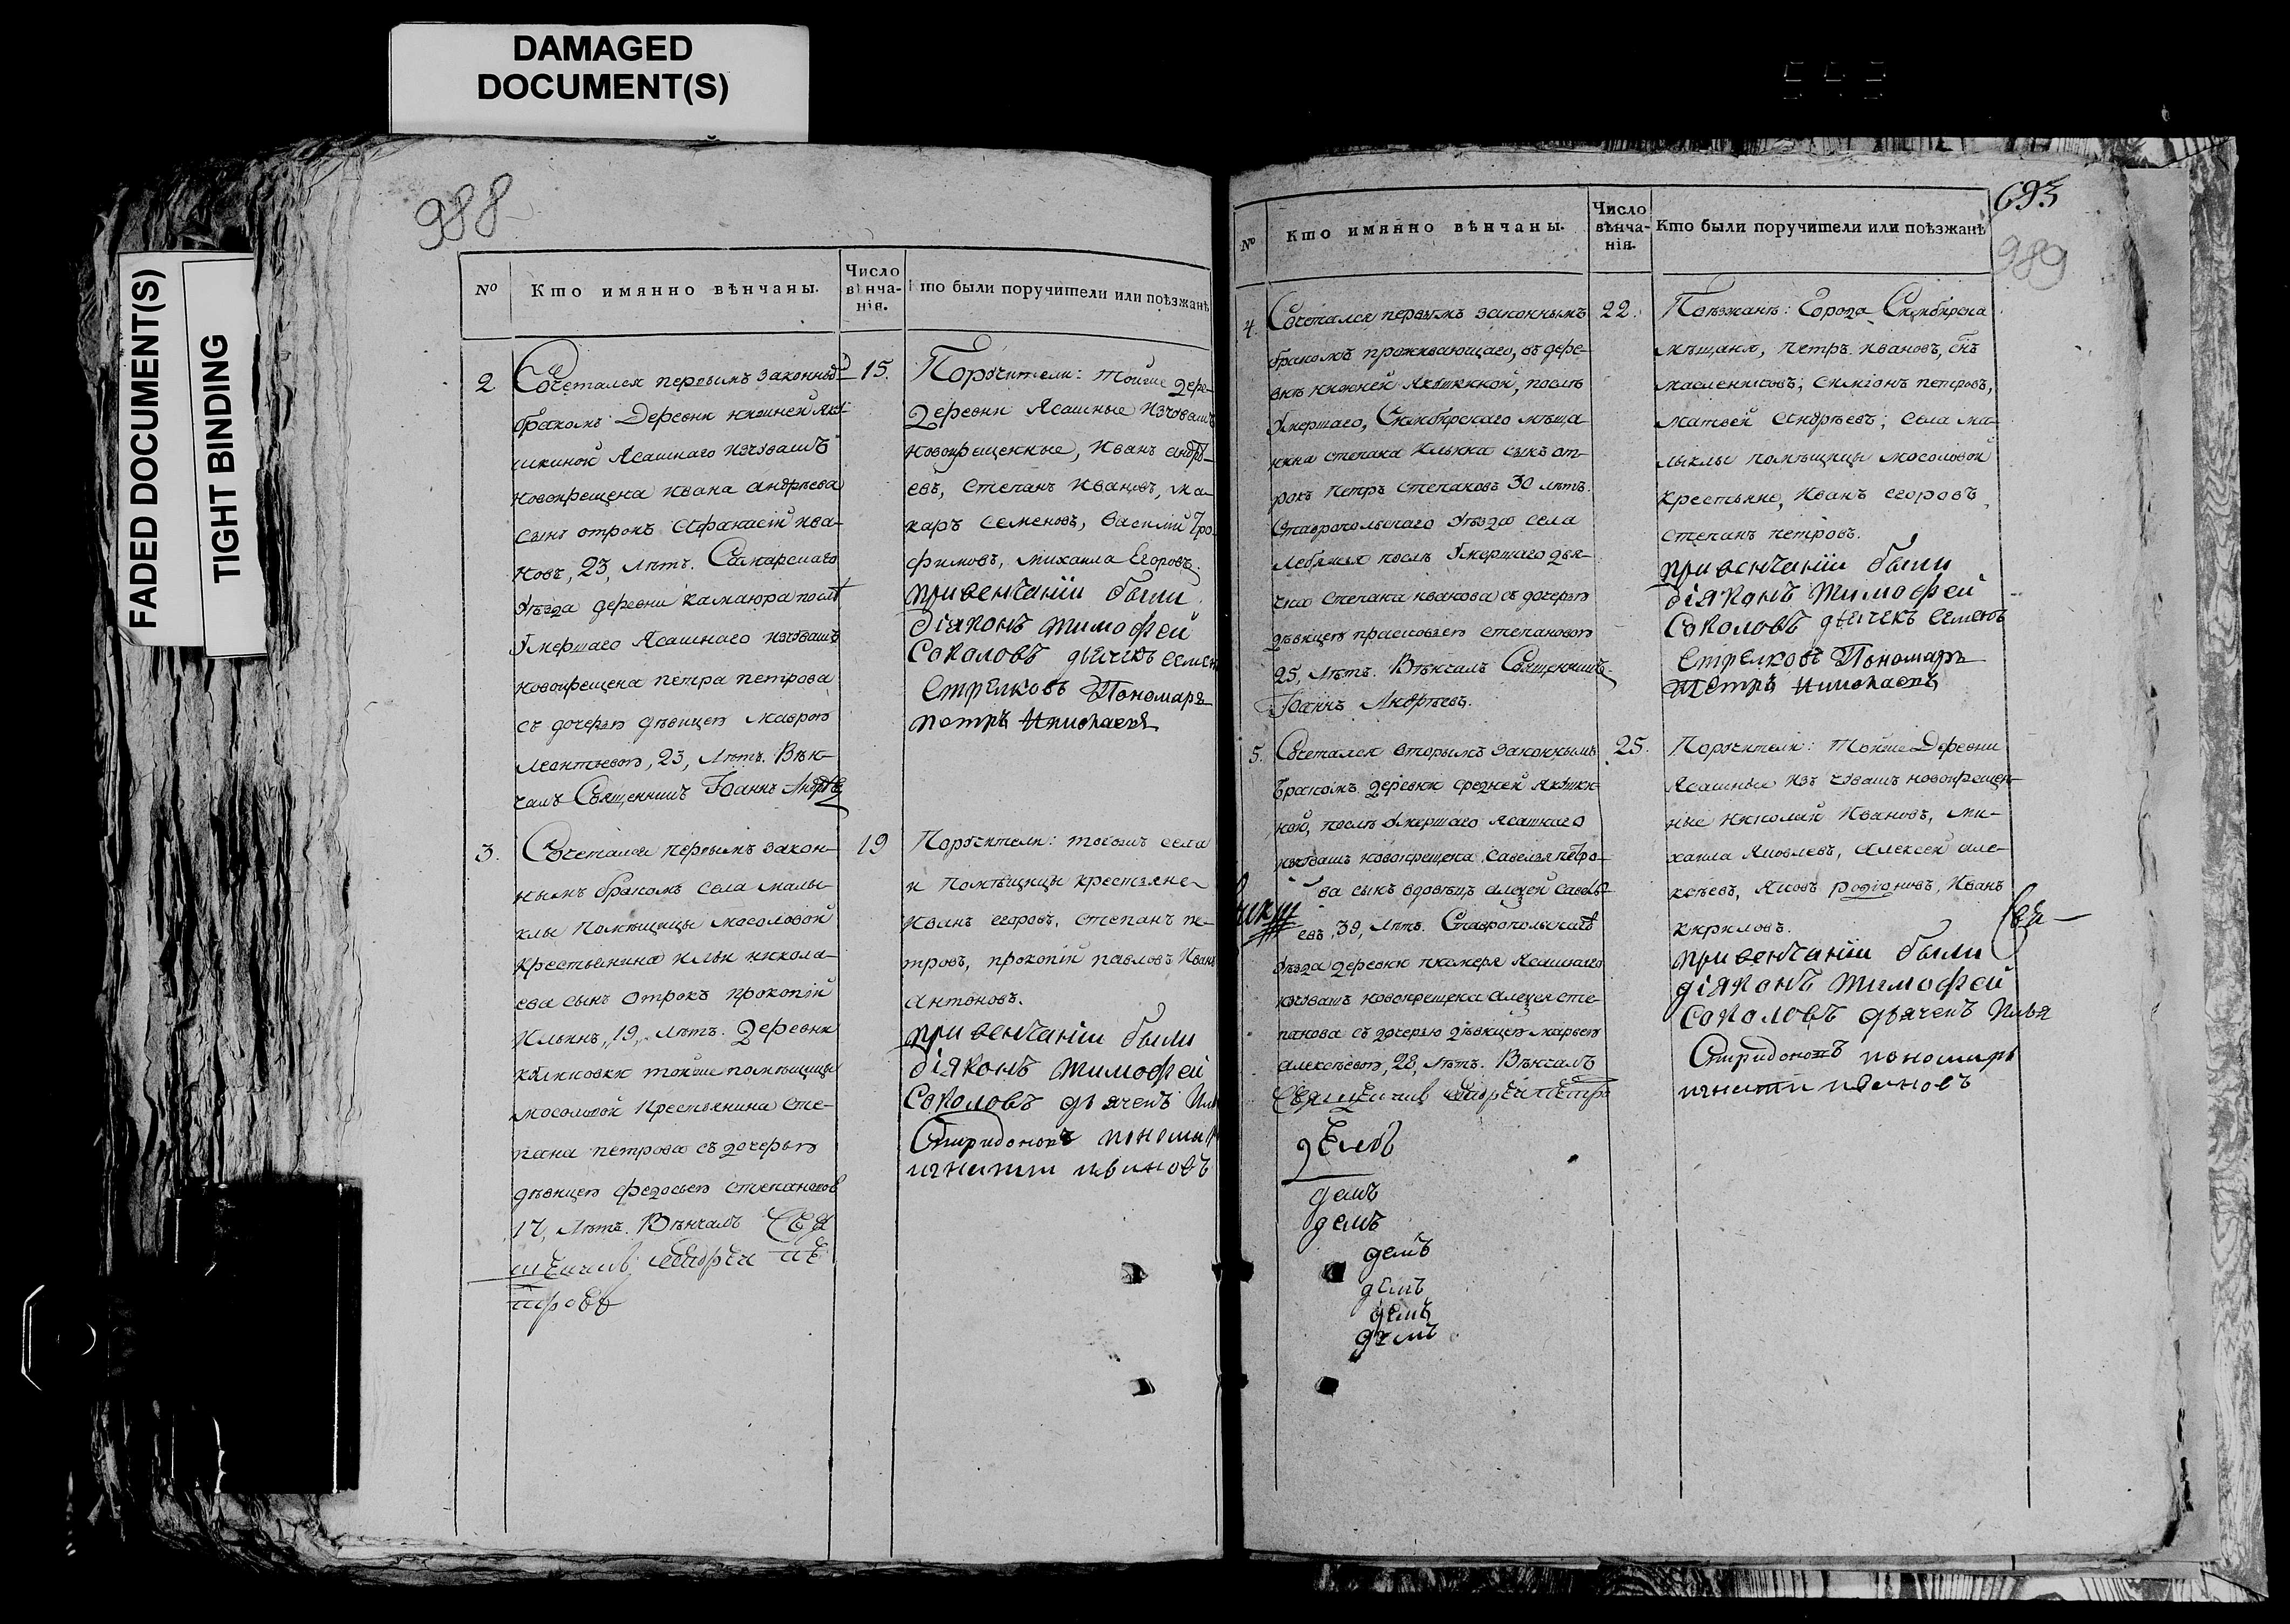 DAMAGED
DOCUMENT(S)
FADED DOCUMENT(S)
TIGHT BINDING
988
№
Кто имянно вѣнчаны.
Число
вѣнча-
нія.
Кто были поручители или поѣзжанѣ
2
Сочетался первымъ законнымъ
бракомъ Деревни нижней Яку-
шкиной Ясашнаго изчювашъ
новокрещена Ивана Андрѣева
сынъ отрокъ Афанасій Ива-
новъ, 23, лѣтъ. Самарскаго
уѣзда деревни Камаюра послѣ
умершаго Ясашнаго изчювашъ
новокрещена петра петрова
съ дочерью дѣвицею Маврою
Леонтьевою, 23, лѣтъ. Вѣн-
чалъ Священникъ Іоаннъ Андрѣевъ
15.
Поручители: тойже дере-
Деревни Ясашные изчювашъ
новокрещенные, Иванъ андрѣ-
евъ, Степанъ Ивановъ, ма-
каръ семеновъ, Василій Тро-
фимовъ, михаила Егоровъ.
при венчаніи были
діяконъ тимофей
Соколовъ дьячекъ семенъ
Стрелковъ Пономарь
петръ Николаевъ
3.
Сочетался первымъ закон-
нымъ бракомъ села малы-
клы Помѣщицы мосоловой
крестьянина Ильи никола-
ева сынъ отрокъ прокопій
Ильинъ, 19, лѣтъ. Деревни
тойже помѣщицы
мосоловой Крестьянина сте-
пана петрова съ дочерью
дѣвицею федосьею степановою
17, лѣтъ. Вѣнчалъ Свя
щенникъ Андрей пе
тровъ
19
Поручители: тогожъ села
и Помѣщицы крестьяне
Иванъ егоровъ, степанъ пе-
тровъ, прокопій павловъ Иванъ
антоновъ.
при венчаніи были
діяконъ тимофей
Соколовъ дьячекъ Илья
Спиридоновъ пономарь
игнатии ивановъ
693
989
№
Кто имянно вѣнчаны.
Число
вѣнча-
нія.
Кто были поручители или поѣзжанѣ
4.
Сочетался первымъ законнымъ
бракомъ проживающаго, въ дере-
внѣ нижней Якушкиной, послѣ
умершаго, Симбирскаго мѣща-
нина степана Ильина сынъ от-
рокъ Петръ Степановъ 30 лѣтъ.
Ставропольскаго уѣзда села
Лебяжья послѣ умершаго дья-
чка степана иванова съ дочерью
дѣвицею прасковьею степановою
25, лѣтъ. Вѣнчалъ Священникъ
Іоаннъ Андрѣевъ.
22.
Поѣзжанѣ: Города Симбирска
мѣщаня, Петръ Ивановъ, снъ
масленниковъ; симіонъ петровъ,
матвей андрѣевъ; села ма-
лыклы помѣщицы мосоловой
крестьяне, Иванъ егоровъ,
степанъ петровъ.
при венчаніи были
діяконъ тимофей
Соколовъ дьячекъ семенъ
Стрелковъ Пономарь
Петръ Николаевъ
5.
Сочетался вторымъ законнымъ
Бракомъ деревни средней Якушки-
ной, послѣ умершаго ясашнаго
изчювашъ новокрещена савелья петро-
ва сынъ вдовѣцъ алексей савель-
евъ, 39, лѣтъ. Ставропольскаго
уѣзда деревни пкомеря Ясашнаго
изчювашъ новокрещена алексея сте-
панова съ дочерью дѣвицею марьею
алексѣевою, 28, лѣтъ. Вѣнчалъ
Священникъ андрей петръ
25.
Поручители: тойже Деревни
Ясашные изъ чювашъ новокрещен-
ные николай Ивановъ, ми-
хаила Яковлевъ, алексей але-
ксѣевъ, Яковъ родіоновъ, Иванъ
кириловъ.
Свя-
при венчаніи были
діяконъ тимофей
Соколовъ дьячекъ Илья
Спиридоновъ пономарь
игнатии ивановъ